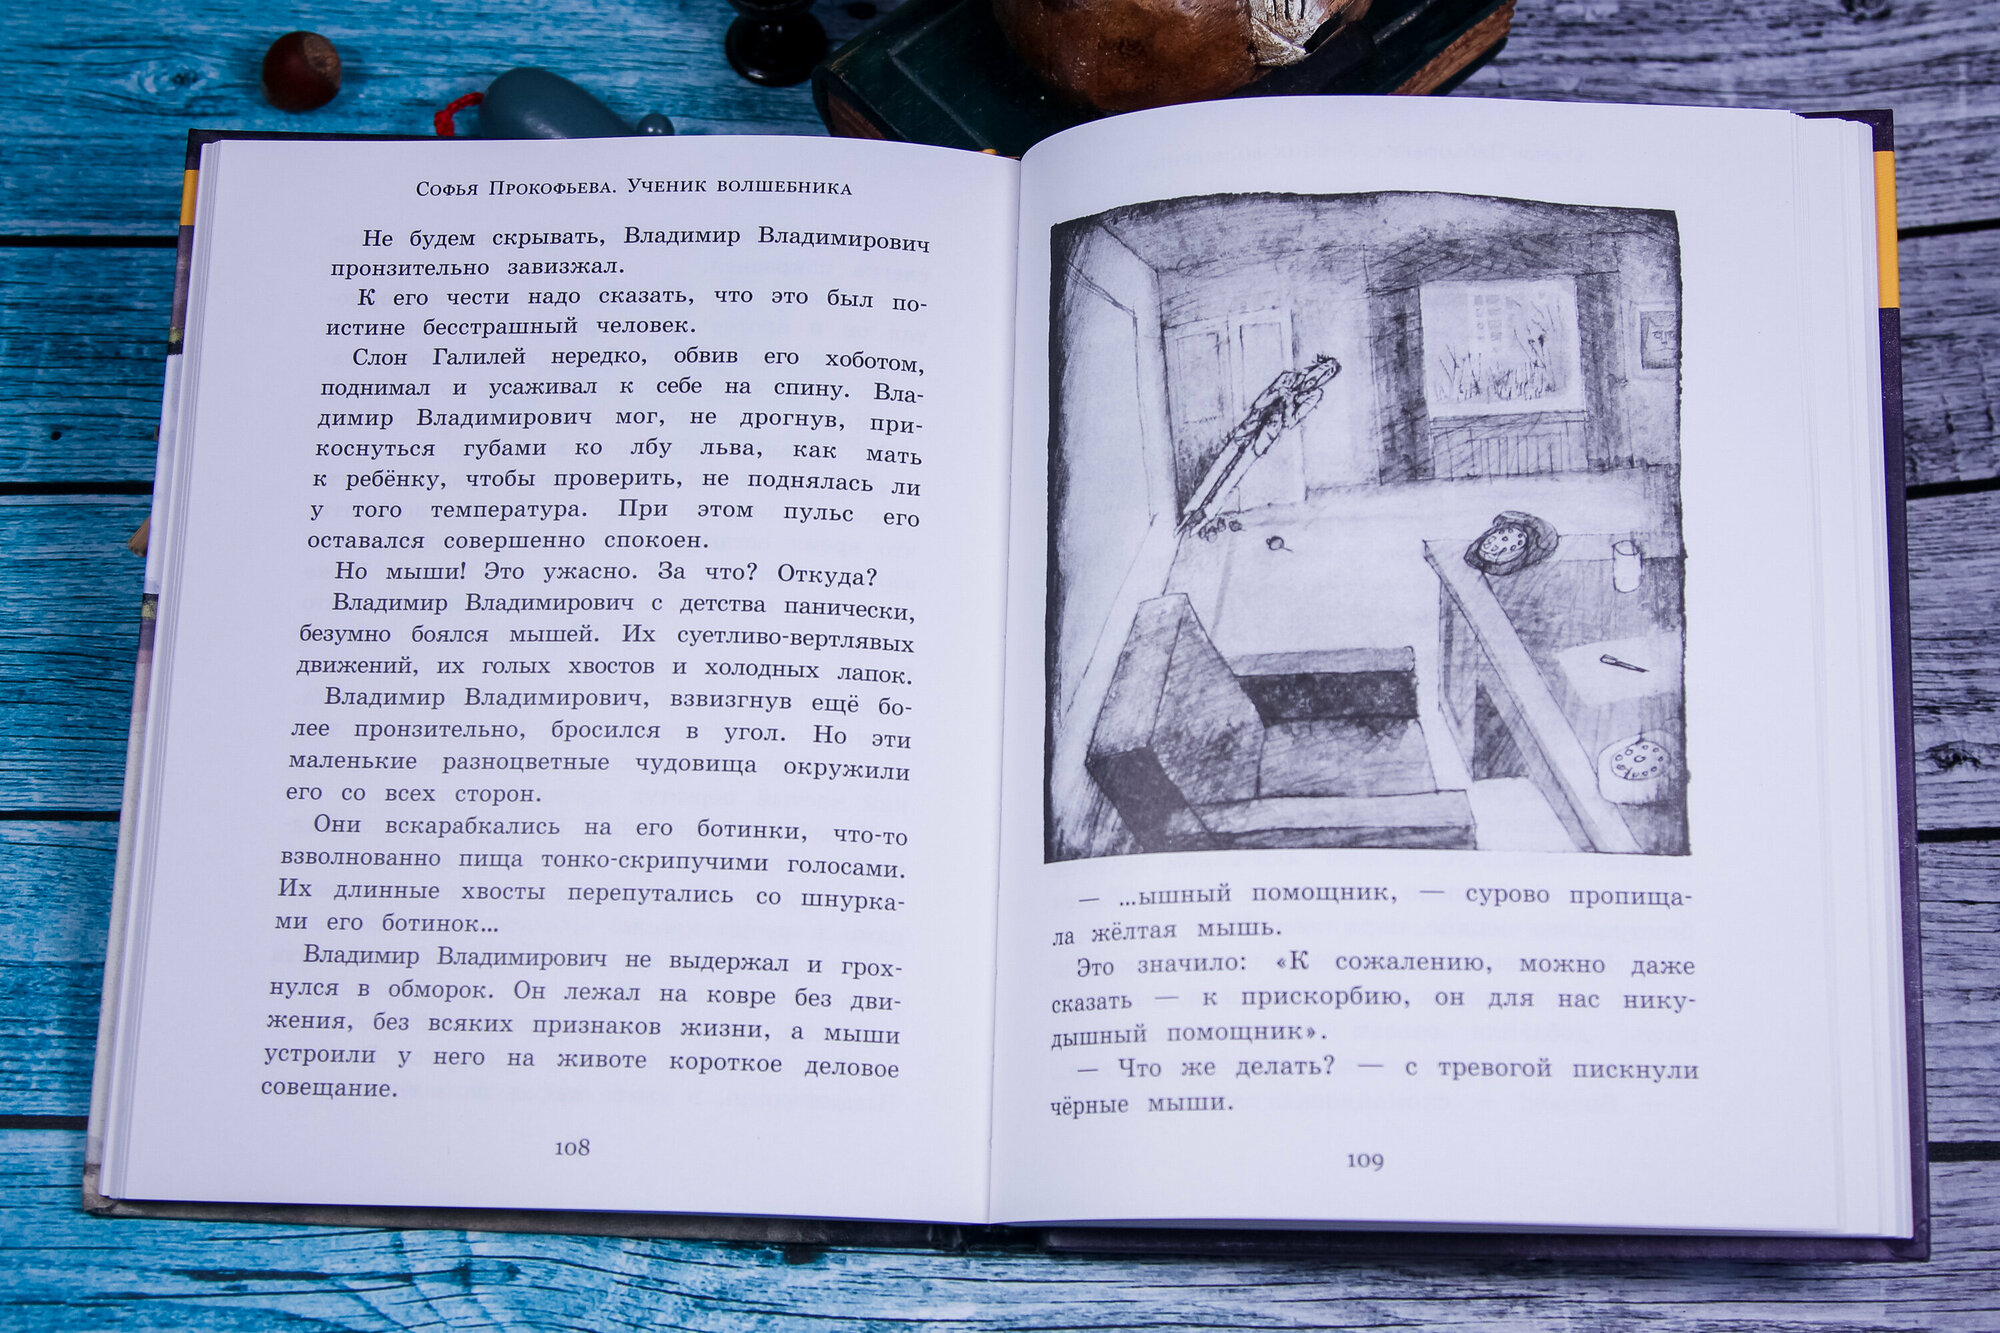 Софья Прокофьева. Ученик волшебника
Не будем скрывать, Владимир Владимирович
пронзительно завизжал.
К его чести надо сказать, что это был по-
истине бесстрашный человек.
Слон Галилей нередко, обвив его хоботом,
поднимал и усаживал к себе на спину. Вла-
димир Владимирович мог, не дрогнув, при-
коснуться губами ко лбу льва, как мать
к ребёнку, чтобы проверить, не поднялась ли
у того температура. При этом пульс его
оставался совершенно спокоен.
Но мыши! Это ужасно. За что? Откуда?
Владимир Владимирович с детства панически,
безумно боялся мышей. Их суетливо-вертлявых
движений, их голых хвостов и холодных лапок.
Владимир Владимирович, взвизгнув ещё бо-
лее пронзительно, бросился в угол. Но эти
маленькие разноцветные чудовища окружили
его со всех сторон.
Они вскарабкались на его ботинки, что-то
взволнованно пища тонко-скрипучими голосами.
Их длинные хвосты перепутались со шнурка-
ми его ботинок...
Владимир Владимирович не выдержал и грох-
нулся в обморок. Он лежал на ковре без дви-
жения, без всяких признаков жизни, а мыши
устроили у него на животе короткое деловое
совещание.
108
— ...ышный помощник, — сурово пропища-
ла жёлтая мышь.
Это значило: «К сожалению, можно даже
сказать — к прискорбию, он для нас нику-
дышный помощник».
— Что же делать? — с тревогой пискнули
чёрные мыши.
109